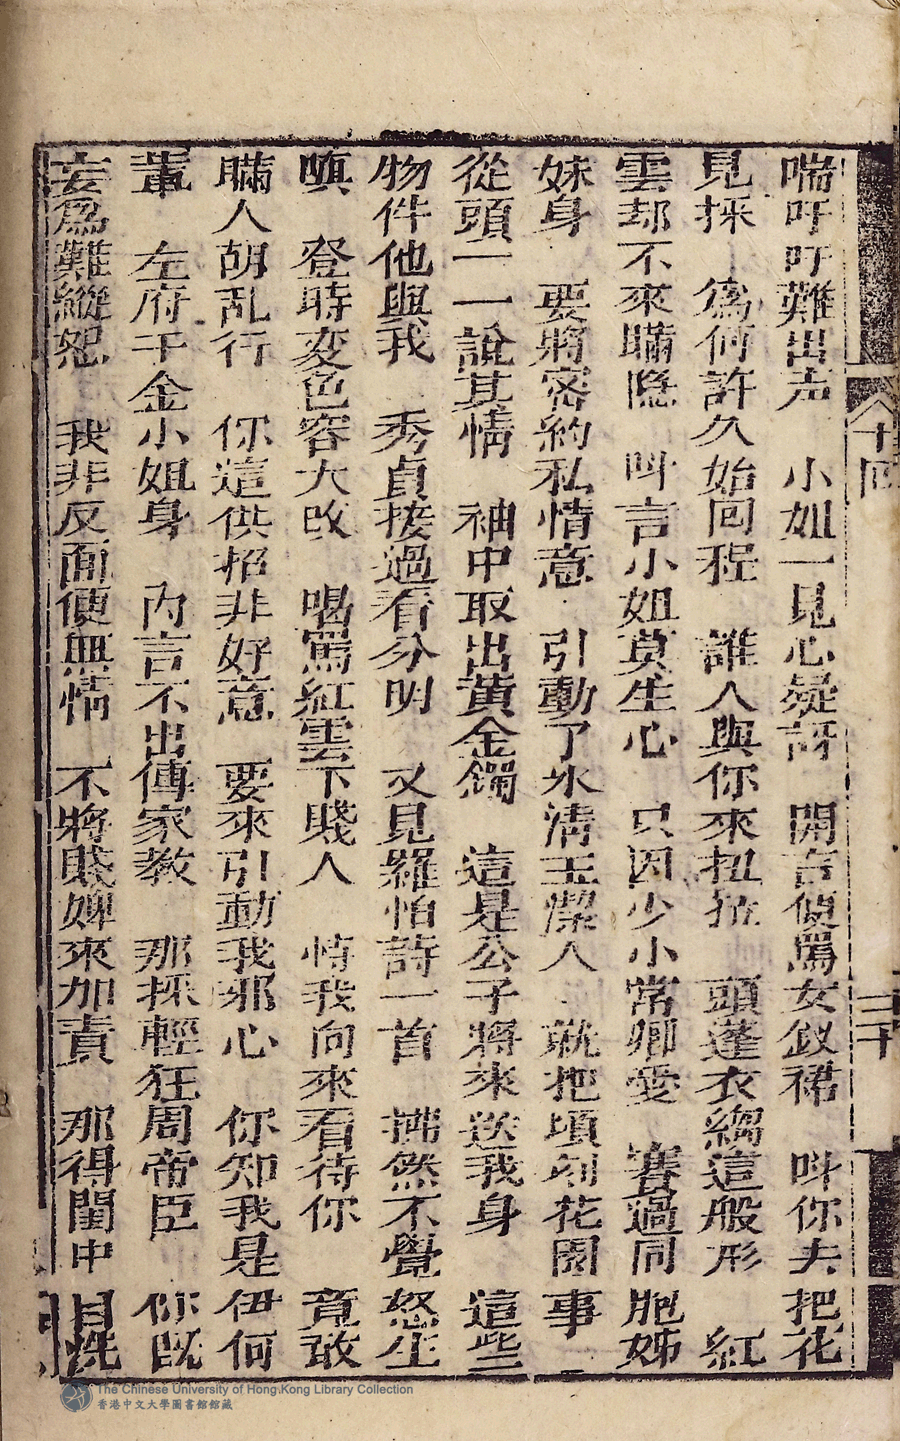 喘吁吁難出声　小姐一見心疑訝　開言便罵女釵裙　叫你去把花
見採　為何許久始回程　誰人與你來扭拉　頭蓬衣縐這般形　紅
雲却不來瞞隐　叫言小姐莫生心　只因少小常卿愛　賽過同胞姊
妹身　要將密約私情意　引動了氷清玉潔人　就把項刻花園事　一
從頭一一說其情　袖中取出黃金鐲　這是公子將來送我身　這些三
物件他與我　秀貞接過看分明　又見羅帕詩一首　拂然不覺怒生
嗔　登時变色容大改　喝罵紅雲下賤人　恃我向來看待你　竟敢
瞞人胡乱行　你這供招非好意　要來引動我邪心　你知我是伊何
輩　左府千金小姐身　內言不出傳家教　那採輕狂周帝臣　你既
妄為難縱恕　我非反面便無情　不將賤婢來加責　那得閨中
八十回
三十
The Chinese University of Hong Kong Library Collection
香港中文大學圖書館館藏